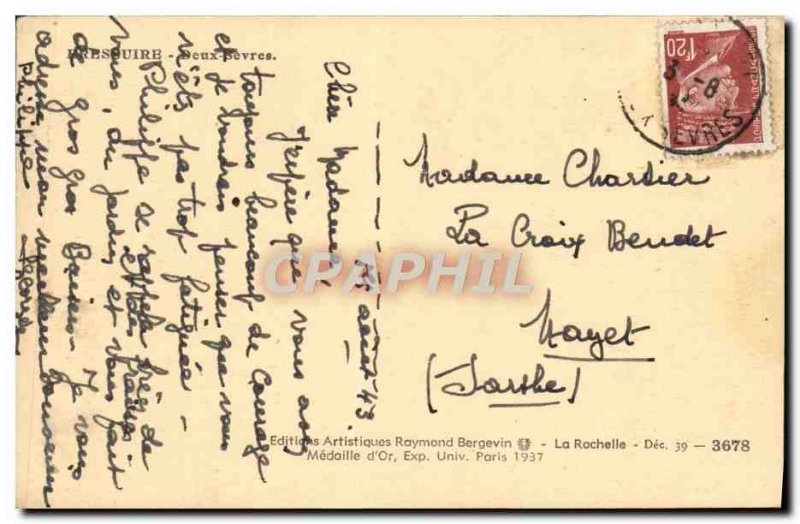 BRESSUIRE - Deux-Sèvres.
1F20
3 -8
SÈVRES
Madame Chardier
La Croix Bendet
Mayet
(Sarthe)
août 43.
Chère Madame,
J'espère que vous avez
toujours beaucoup de courage
et je voudrais penser que vous
n'êtes pas trop fatiguée -
Philippe se rappelle très de
vous, du jardin et vous fait
de gros gros Baisers. Je vous
adresse mon meilleur souvenir
Philippe
CPAPHIL
Editions Artistiques Raymond Bergevin - La Rochelle - Déc. 39 - 3678
Médaille d'Or, Exp. Univ. Paris 1937